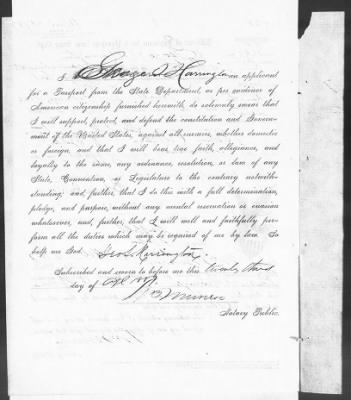 I, George S. Harrington an applicant
for a Passport from the State Department, as per evidence of
American citizenship furnished herewith, do solemnly swear that
I will support, protect, and defend the constitution and Govern-
ment of the United States, against all enemies, whether domestic
or foreign, and that I will bear true faith, allegiance, and
loyalty to the same, any ordinance, resolution, or law of any
State, Convention, or Legislature to the contrary notwith-
standing; and, further, that I do this with a full determination,
pledge, and purpose, without any mental reservation or evasion
whatsoever, and, further, that I will well and faithfully per-
form all the duties which may be required of me by law. So
help me God.
Geo S. Harrington.
Subscribed and sworn to before me this twenty third
day of
Notary Public.